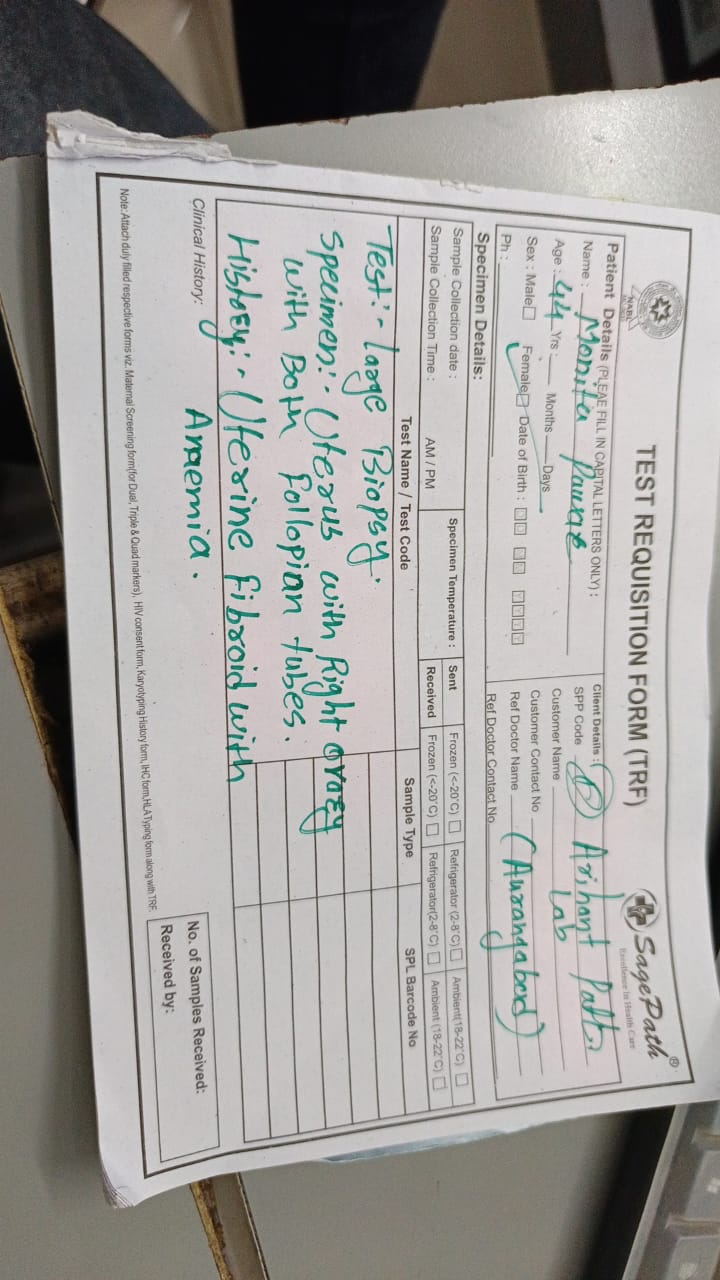 NABL
TEST REQUISITION FORM (TRF)
SagePath®
Excellence In Health Care
Patient Details (PLEAE FILL IN CAPITAL LETTERS ONLY) :
Name :
Age : 44 Yrs : Months Days
Sex : Male Female Date of Birth :
Ph :
Client Details :
SPP Code Arihant Path
Customer Name Lab
Customer Contact No
Ref Doctor Name (Aurangabad)
Ref Doctor Contact No
Specimen Details:
Sample Collection date :
Sample Collection Time : AM / PM
Specimen Temperature : Sent Frozen (<-20°C) Refrigerator (2-8°C) Ambient(18-22°C)
Received Frozen (<-20°C) Refrigerator(2-8°C) Ambient (18-22°C)
Test Name / Test Code Sample Type SPL Barcode No
Test:- large Biopsy.
Specimen:- Uterus with Right ovary
with Both fallopian tubes.
History:- Uterine fibroid with
Anaemia.
Clinical History:
No. of Samples Received:
Received by:
Note: Attach duly filled respective forms viz. Maternal Screening form(for Dual, Triple & Quad markers), HIV consent form, Karyotyping History form, IHC form,HLA Typing form along with TRF.